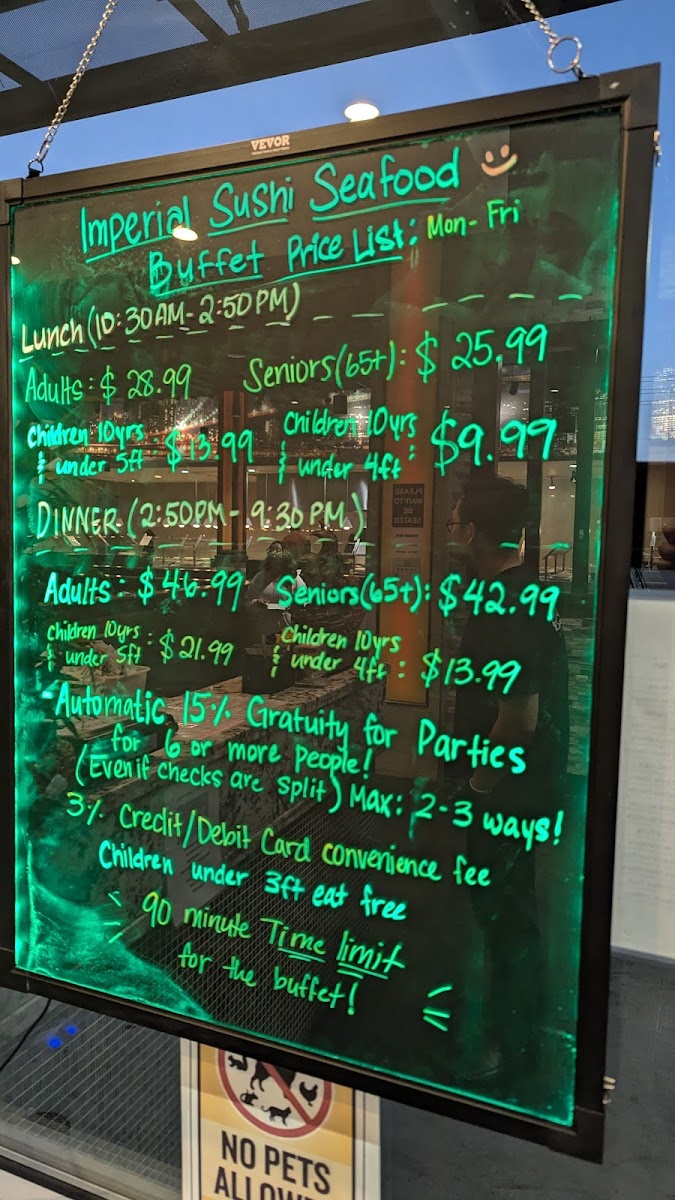 VEVOR
Imperial Sushi Seafood
Buffet Price List: Mon - Fri
Lunch (10:30AM - 2:50PM)
Adults: $28.99 Seniors(65+): $25.99
Children 10yrs & under 5ft: $13.99 Children 10yrs & under 4ft: $9.99
DINNER (2:50PM - 9:30PM)
Adults: $46.99 Seniors(65+): $42.99
Children 10yrs & under 5ft: $21.99 Children 10yrs & under 4ft: $13.99
Automatic 15% Gratuity for Parties
for 6 or more people!
(Even if checks are split) Max: 2-3 ways!
3% Credit/Debit Card convenience fee
Children under 3ft eat free
90 minute Time limit
for the buffet!
PLEASE
WAIT TO
BE
SEATED
NO PETS
ALLOWE